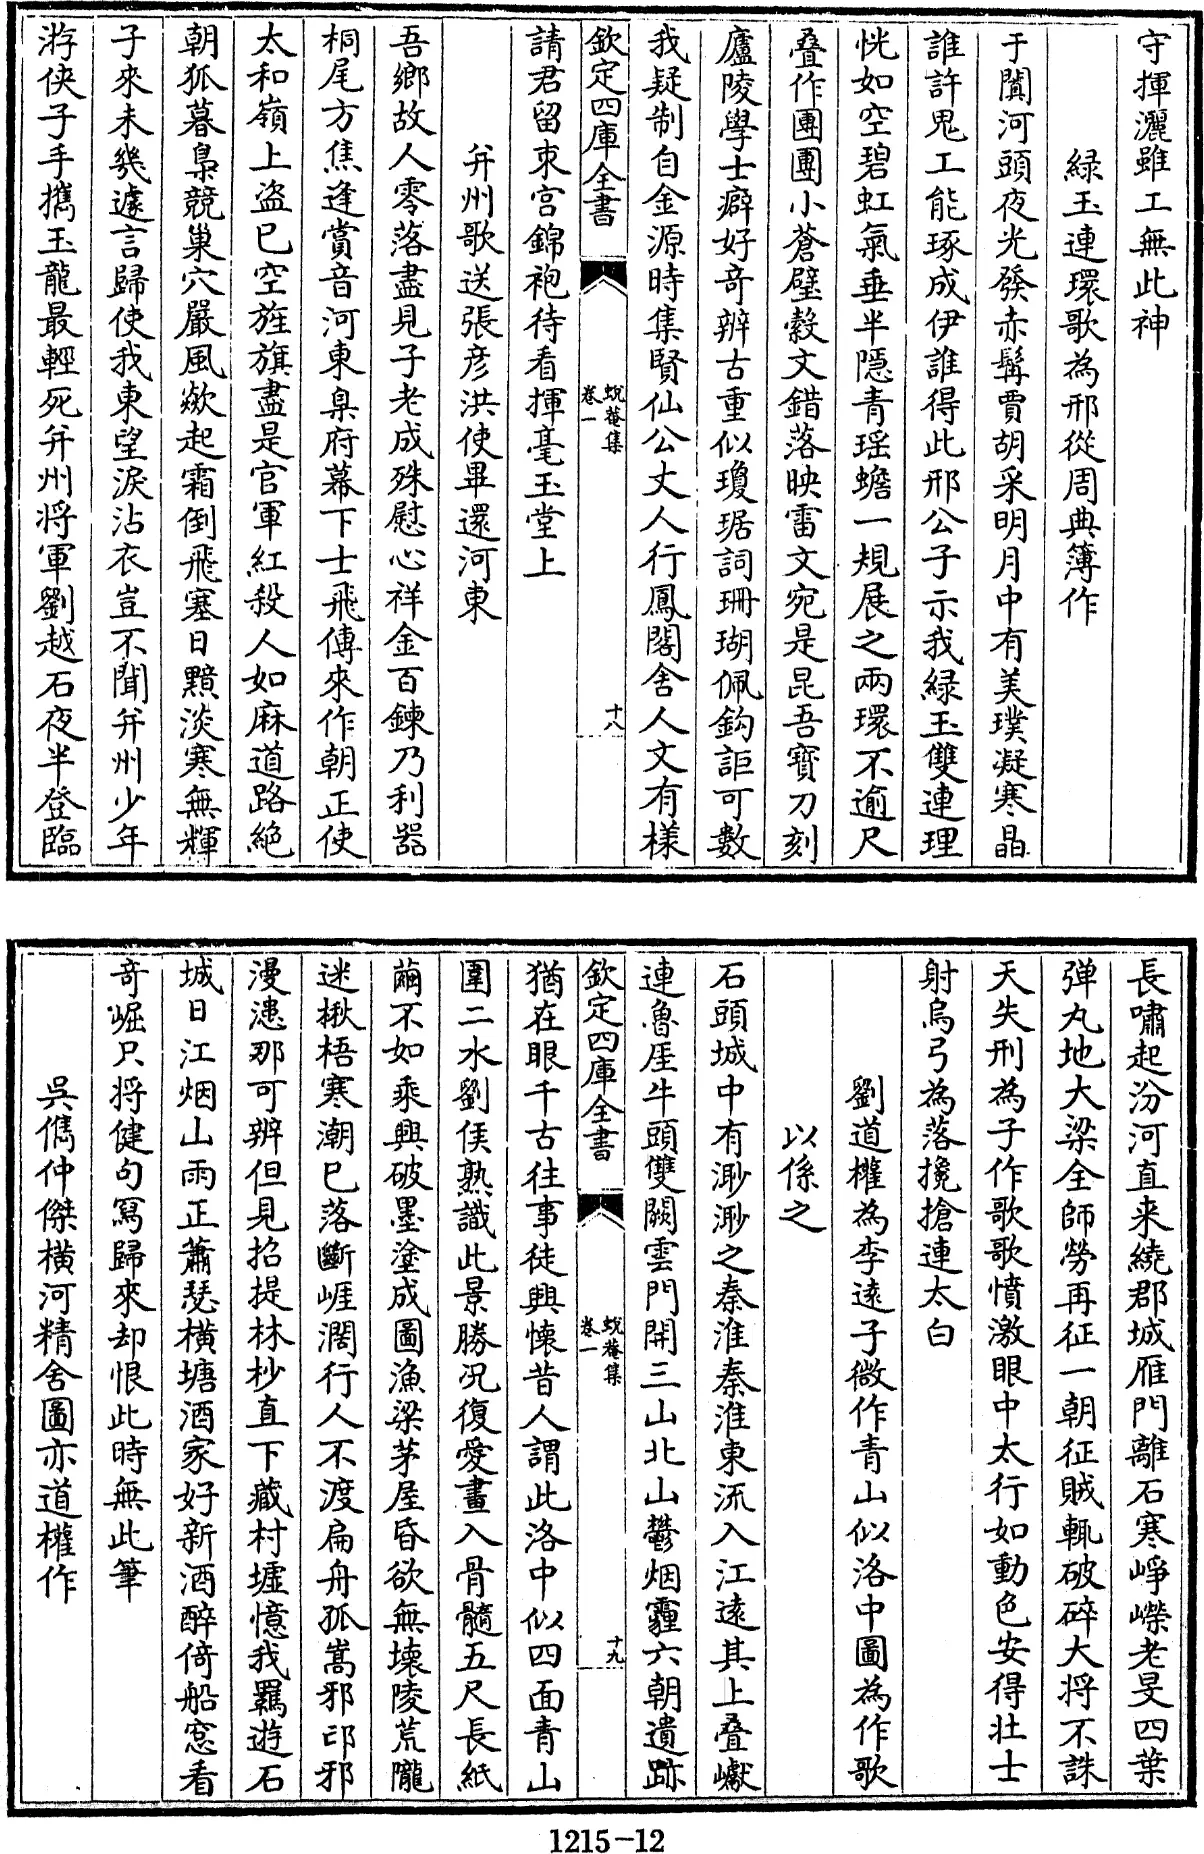 守揮灑雖工無此神
綠玉連環歌為邢從周典簿作
于闐河頭夜光發赤髯賈胡采明月中有美璞凝寒晶
誰許鬼工能琢成伊誰得此邢公子示我綠玉雙連理
恍如空碧虹氣垂半隱青瑶蟾一規展之兩環不逾尺
叠作團團小蒼璧縠文錯落映雷文宛是昆吾寶刀刻
廬陵學士癖好奇辨古重似瓊琚詞珊瑚佩鈎詎可數
我疑制自金源時集賢仙公丈人行鳳閣舍人文有樣
欽定四庫全書
蛻菴集
卷一
十八
請君留朿宫錦袍待看揮毫玉堂上
并州歌送張彦洪使畢還河東
吾鄉故人零落盡見子老成殊慰心祥金百鍊乃利器
桐尾方焦逢賞音河東臬府幕下士飛傳來作朝正使
太和嶺上盗已空旌旗盡是官軍紅殺人如麻道路絶
朝狐暮梟競巢穴嚴風歘起霜倒飛塞日黯淡寒無輝
子來未幾遽言歸使我東望淚沾衣豈不聞并州少年
游俠子手攜玉龍最輕死并州将軍劉越石夜半登臨
長嘯起汾河直来繞郡城雁門離石寒崢嶸老旻四葉
弹丸地大梁全師勞再征一朝征賊輒破碎大将不誅
天失刑為子作歌歌憤激眼中太行如動色安得壮士
射烏弓為落攙搶連太白
劉道權為李遠子微作青山似洛中圖為作歌
以係之
石頭城中有渺渺之秦淮秦淮東流入江遠其上叠巘
連魯厓牛頭雙闕雲門開三山北山鬱烟霾六朝遺跡
欽定四庫全書
蛻菴集
卷一
十九
猶在眼千古往事徒興懷昔人謂此洛中似四面青山
圍二水劉侯熟識此景勝况復愛畫入骨髓五尺長紙
繭不如乘興破墨塗成圖漁梁茅屋昏欲無壞陵荒隴
迷楸梧寒潮已落斷崕濶行人不渡扁舟孤嵩邪邙邪
漫漶那可辨但見招提林杪直下藏村墟憶我羈遊石
城日江烟山雨正蕭瑟横塘酒家好新酒醉倚船窓看
奇崛只将健句寫歸來却恨此時無此筆
吳儁仲傑横河精舍圖亦道權作
1215-12